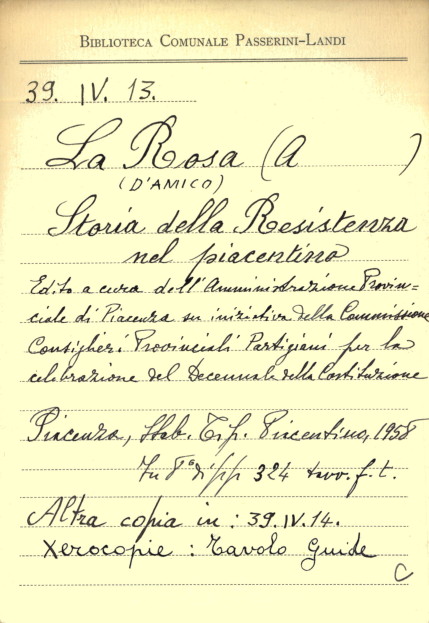 BIBLIOTECA COMUNALE PASSERINI-LANDI
39. IV. 13.
La Rosa (A )
(D'AMICO)
Storia della Resistenza
nel piacentino
Edito a cura dell'Amministrazione Provin=
ciale di Piacenza su iniziativa della Commissione
Consiglieri Provinciali Partigiani per la
celebrazione del Decennale della Costituzione
Piacenza, Stab. Tip. Piacentino, 1958
In 8° di pp 324 tavv. f. t.
Altra copia in : 39. IV. 14.
Xerocopie : Tavolo Guide
C